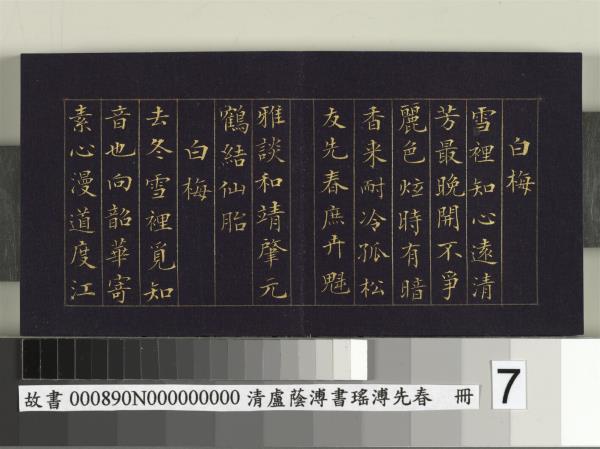 白梅
雪裡知心遠清
芳最晚開不爭
麗色炫時有暗
香來耐冷孤松
友先春庶卉魁
雅談和靖肇元
鶴結仙胎
白梅
去冬雪裡覓知
音也向韶華寄
素心漫道度江
故書 000890N000000000 清盧蔭溥書瑤溥先春 冊
7